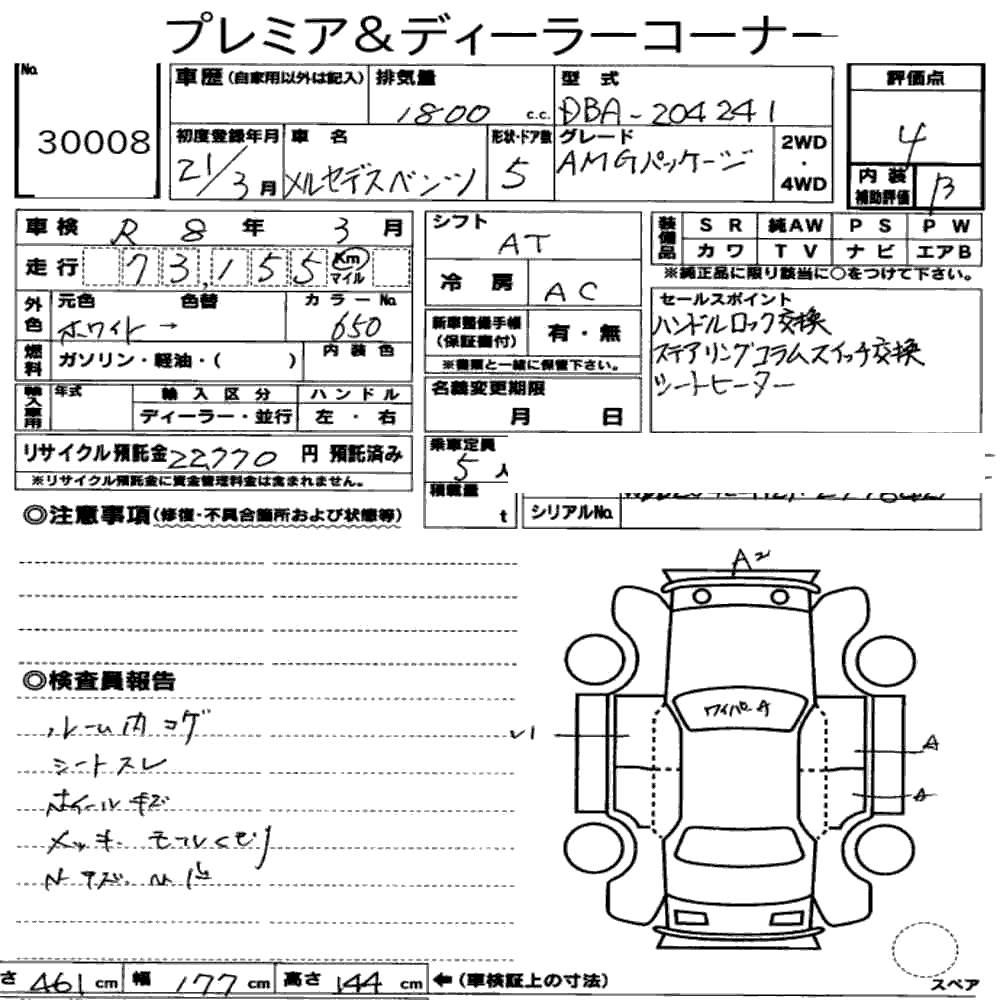 プレミア&ディーラーコーナー
No. 30008
車歴(自家用以外は記入) 排気量 1800 c.c. 型式 DBA-204241
初度登録年月 21/3月 車名 メルセデスベンツ 形状・ドア数 5 グレード AMGパッケージ 2WD・4WD
評価点 4
内装補助評価 B
車検 R 8 年 3 月
走行 73,155 Km マイル
外色 元色 ホワイト → 色替 カラーNo. 650
燃料 ガソリン・軽油・( ) 内装色
輸入車用 年式 輸入区分 ハンドル
ディーラー・並行 左・右
リサイクル預託金 22,770 円 預託済み
※リサイクル預託金に資金管理料金は含まれません。
シフト AT
冷房 AC
新車整備手帳(保証書付) 有・無
※書類と一緒に保管下さい。
名義変更期限
月 日
乗車定員 5 人
積載量 t
シリアルNo.
装備品 SR 純AW PS PW
カワ TV ナビ エアB
※純正品に限り該当に○をつけて下さい。
セールスポイント
ハンドルロック交換
ステアリングコラムスイッチ交換
シートヒーター
◎注意事項(修復・不具合箇所および状態等)
◎検査員報告
ルーム内コゲ
シートスレ
ホイールキズ
メッキモールくもり
A2
ワイパーA
A
A
461 cm 幅 177 cm 高さ 144 cm ←(車検証上の寸法)
スペア